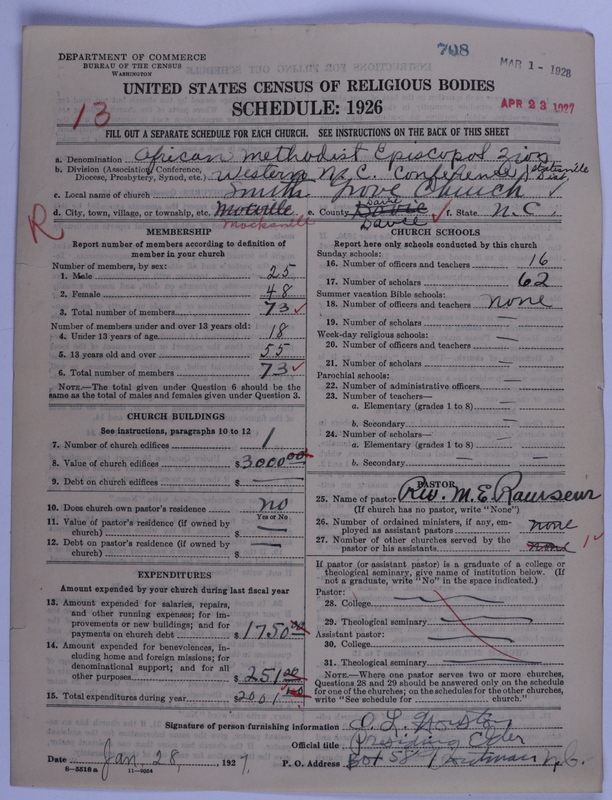 708
MAR 1 - 1928
APR 23 1927
13
DEPARTMENT OF COMMERCE
BUREAU OF THE CENSUS
WASHINGTON
UNITED STATES CENSUS OF RELIGIOUS BODIES
SCHEDULE: 1926
FILL OUT A SEPARATE SCHEDULE FOR EACH CHURCH. SEE INSTRUCTIONS ON THE BACK OF THIS SHEET
a. Denomination African Methodist Episcopal Zion
b. Division (Association, Conference, Diocese, Presbytery, Synod, etc.) Western N.C. Conference Statesville Dist.
c. Local name of church Smith Grove Church
d. City, town, village, or township, etc. Mocksville e. County Davie Davie f. State N.C.
R
MEMBERSHIP
Report number of members according to definition of member in your church
Number of members, by sex:
1. Male 25
2. Female 48
3. Total number of members 73
Number of members under and over 13 years old:
4. Under 13 years of age 18
5. 13 years old and over 55
6. Total number of members 73
NOTE.—The total given under Question 6 should be the same as the total of males and females given under Question 3.
CHURCH BUILDINGS
See instructions, paragraphs 10 to 12
7. Number of church edifices 1
8. Value of church edifices $3000.00
9. Debt on church edifices $
10. Does church own pastor's residence no
Yes or No
11. Value of pastor's residence (if owned by church) $
12. Debt on pastor's residence (if owned by church) $
EXPENDITURES
Amount expended by your church during last fiscal year
13. Amount expended for salaries, repairs, and other running expenses; for improvements or new buildings; and for payments on church debt $1750.00
14. Amount expended for benevolences, including home and foreign missions; for denominational support; and for all other purposes $251.00
15. Total expenditures during year $2001.00
CHURCH SCHOOLS
Report here only schools conducted by this church
Sunday schools:
16. Number of officers and teachers 16
17. Number of scholars 62
Summer vacation Bible schools:
18. Number of officers and teachers none
19. Number of scholars —
Week-day religious schools:
20. Number of officers and teachers —
21. Number of scholars —
Parochial schools:
22. Number of administrative officers —
23. Number of teachers—
a. Elementary (grades 1 to 8) —
b. Secondary —
24. Number of scholars—
a. Elementary (grades 1 to 8) —
b. Secondary —
PASTOR
25. Name of pastor Rev. M. E.
(If church has no pastor, write "None")
26. Number of ordained ministers, if any, employed as assistant pastors none
27. Number of other churches served by the pastor or his assistants none 1
If pastor (or assistant pastor) is a graduate of a college or theological seminary, give name of institution below. (If not a graduate, write "No" in the space indicated.)
Pastor:
28. College
29. Theological seminary
Assistant pastor:
30. College
31. Theological seminary
NOTE.—Where one pastor serves two or more churches, Questions 28 and 29 should be answered only on the schedule for one of the churches; on the schedules for the other churches, write "See schedule for church."
Signature of person furnishing information O. L. Houston
Official title Presiding Elder
Date Jan, 28, 1927. P. O. Address Box 58 N.C.
8—5518 a 11—9064